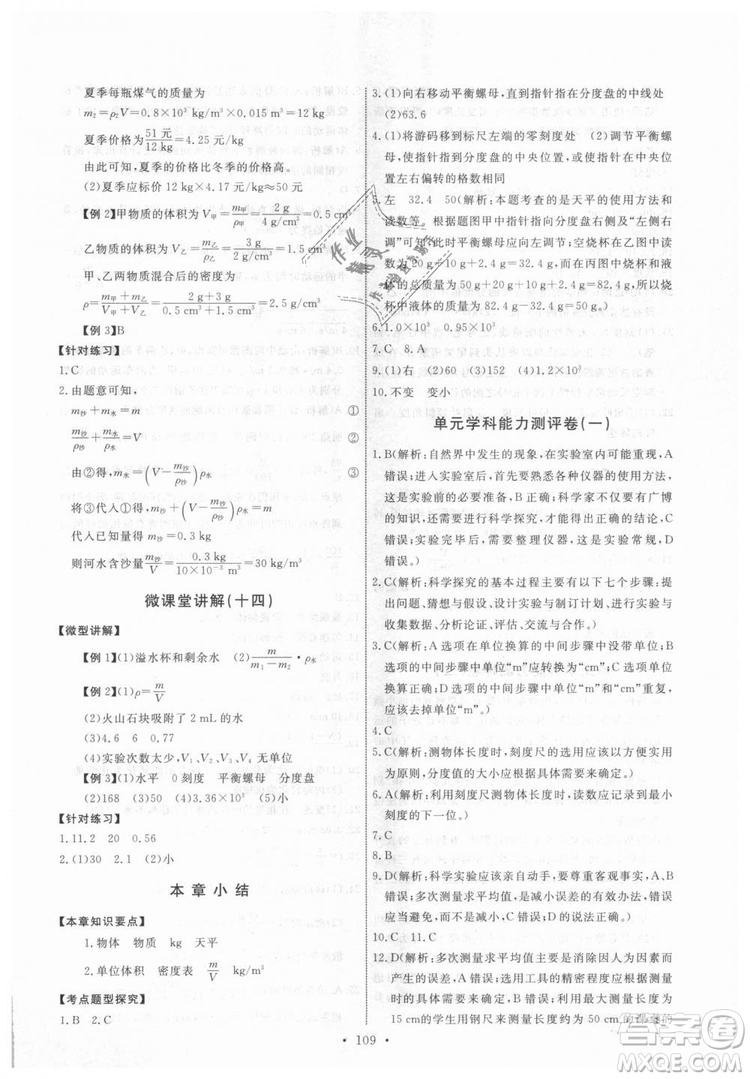 夏季每瓶煤气的质量为
m₂=ρ₂V=0.8×10³ kg/m³×0.015 m³=12 kg
夏季价格为51元/12 kg=4.25 元/kg
由此可知,夏季的价格比冬季的价格高。
(2)夏季应标价 12 kg×4.17 元/kg≈50 元
【例 2】甲物质的体积为 V甲=m甲/ρ甲=2 g/4 g/cm³=0.5 cm³
乙物质的体积为 V乙=m乙/ρ乙=3 g/2 g/cm³=1.5 cm³
甲、乙两物质混合后的密度为
ρ=(m甲+m乙)/(V甲+V乙)=(2 g+3 g)/(0.5 cm³+1.5 cm³)=2.5 g/cm³
【例 3】B
【针对练习】
1.C
2.由题意可知,
m沙+m水=m ①
m沙/ρ沙+m水/ρ水=V ②
由②得,m水=(V-m沙/ρ沙)ρ水 ③
将③代入①得,m沙+(V-m沙/ρ沙)ρ水=m
代入已知量得 m沙=0.3 kg
则河水含沙量为m沙/V=0.3 kg/10×10⁻³ m³=30 kg/m³
微课堂讲解(十四)
【微型讲解】
【例 1】(1)溢水杯和剩余水 (2)m/(m₁-m₂)·ρ水
【例 2】(1)ρ=m/V
(2)火山石块吸附了 2 mL的水
(3)4.6 6 0.77
(4)实验次数太少,V₁、V₂、V₃、V₄
【例 3】(1)水平 0刻度 平衡螺母 分度盘
(2)168 (3)50 (4)3.36×10³ (5)小
【针对练习】
1.11.2 20 0.56
2.(1)30 2.1 (2)小
本章小结
【本章知识要点】
1.物体 物质 kg 天平
2.单位体积 密度表 m/V kg/m³
【考点题型探究】
1.B 2.C
3.(1)向右移动平衡螺母,直到指针指在分度盘的中线处
(2)63.6
4.(1)将游码移到标尺左端的零刻度处 (2)调节平衡螺
母,使指针指在分度盘的中央位置,或使指针在中央位
置左右偏转的格数相同
5.左 32.4 50(解析:本题考查的是天平的使用和
读数等。根据题图甲中指针指向分度盘右侧及“左侧右
调”可知此时平衡螺母应向左调动;空烧杯在乙图中的
读数为 20 g+10 g+2.4 g=32.4 g,丙图中烧杯和液
体的总质量为 50 g+20 g+10 g+2.4 g=82.4 g,所以
烧杯中液体的质量为 82.4 g-32.4 g=50 g。)
6.1.0×10³ 0.95×10³
7.C 8.A
9.(1)右 (2)60 (3)152 (4)1.2×10³
10.不变 变小
单元学科能力测评卷(一)
1.B(解析:自然界中发生的现象,在实验室内可重现,A
错误;进入实验室后,首先要了解各种仪器的使用方法,
这是实验前的必要准备,B正确;科学家不仅仅有广博
的知识,还需要经过探究,才能得出正确的结论,C
错误。实验完毕后,需要整理仪器,这是实验常规,D
错误。)
2.C(解析:科学探究的基本过程主要有以下七个步骤:提
出问题、猜想与假设、设计实验与制订计划、进行实验与
收集数据、分析与论证、评估、交流与合作。)
3.C(解析:A选项在单位换算的中间步骤中没带单位;B
选项的中间步骤中“m”应转换为“cm”;C选项单位
换算正确;D选项的中间步骤中多了一个单位“m”,
应该去掉单位“m”。)
4.C
5.D(解析:测物体长度时,尽可能以满足实际测量要求
为原则,分度值的大小适当即可,D正确。)
6.A(解析:利用刻度尺测长度时,读数应读到最小
刻度的下一位。)
7.C
8.B
9.D(解析:科学实验应亲自动手,要尊重客观事实,A、B
错误;多次测量求平均值,是减小误差的有效办法,误差
应避免出现,但无法避免,C错误,D正确。)
10.C 11.C
12.D(解析:多次测量求平均可以消除因人为因素
而产生的误差,A错误;选用工具的精密程度应根据
实际测量的需要来确定,B错误;测量长度约为
15 cm的学生用钢尺来测量长度约为 50 cm的课桌的
109